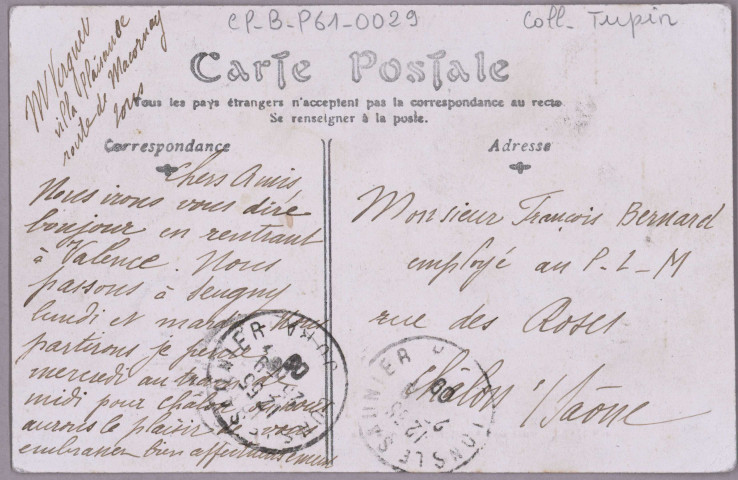 CP-B-P61-0029
Coll-Tupin
Mr Verguet
villa Plaisance
route de Macornay
Lons
Carte Postale
Tous les pays étrangers n'acceptent pas la correspondance au recto
Se renseigner à la poste.
Correspondance
Chers Amis,
Nous irons vous dire
bonjour en rentrant
à Valence. Nous
passons à
lundi et mardi. Nous
partirons je pense
mercredi au train de
midi pour
aurons le plaisir de vous
embrasser bien affectueusement
Adresse
Monsieur François Bernard
employé au P-L-M
rue des Roses
Châlon s/Saône
LONS LE SAUNIER JURA
LONS LE SAUNIER